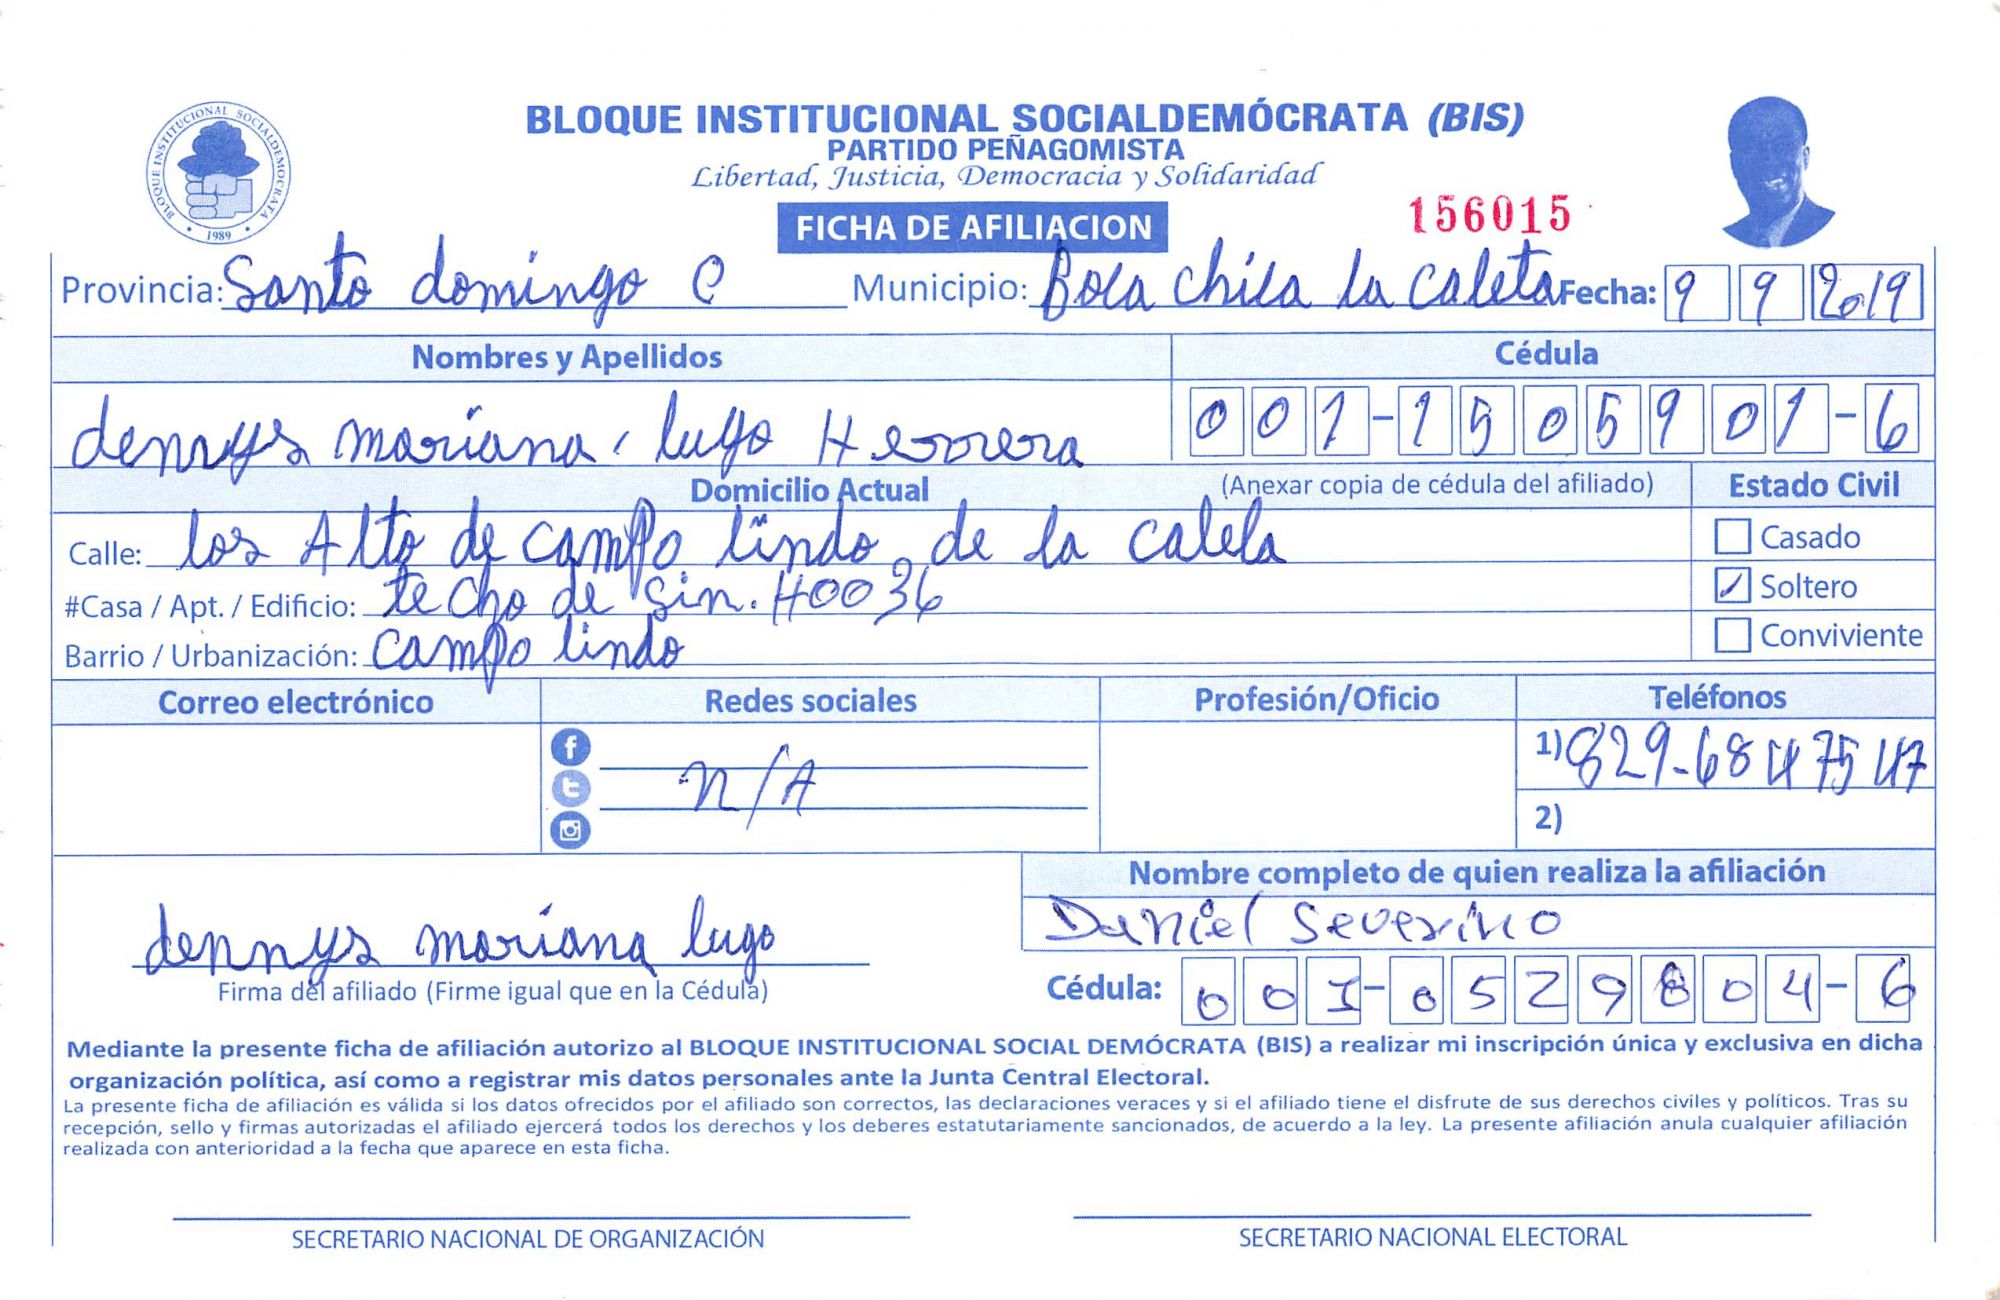 BLOQUE INSTITUCIONAL SOCIALDEMOCRATA
1989
BLOQUE INSTITUCIONAL SOCIALDEMÓCRATA (BIS)
PARTIDO PEÑAGOMISTA
Libertad, Justicia, Democracia y Solidaridad
FICHA DE AFILIACION
156015
Provincia: Santo domingo Municipio: Boca chica la caleta Fecha: 9 9 2019
Nombres y Apellidos Cédula
dennys mariana lugo Herrera 001-1505901-6
Domicilio Actual (Anexar copia de cédula del afiliado) Estado Civil
Calle: los Alto de campo lindo de la caleta Casado
#Casa / Apt. / Edificio: techo de sin. H0036 Soltero
Barrio / Urbanización: campo lindo Conviviente
Correo electrónico Redes sociales Profesión/Oficio Teléfonos
1) 829-6847547
n/A
2)
Nombre completo de quien realiza la afiliación
Daniel Severino
dennys mariana lugo
Firma del afiliado (Firme igual que en la Cédula) Cédula: 001-0529804-6
Mediante la presente ficha de afiliación autorizo al BLOQUE INSTITUCIONAL SOCIAL DEMÓCRATA (BIS) a realizar mi inscripción única y exclusiva en dicha
organización política, así como a registrar mis datos personales ante la Junta Central Electoral.
La presente ficha de afiliación es válida si los datos ofrecidos por el afiliado son correctos, las declaraciones veraces y si el afiliado tiene el disfrute de sus derechos civiles y políticos. Tras su
recepción, sello y firmas autorizadas el afiliado ejercerá todos los derechos y los deberes estatutariamente sancionados, de acuerdo a la ley. La presente afiliación anula cualquier afiliación
realizada con anterioridad a la fecha que aparece en esta ficha.
SECRETARIO NACIONAL DE ORGANIZACIÓN SECRETARIO NACIONAL ELECTORAL